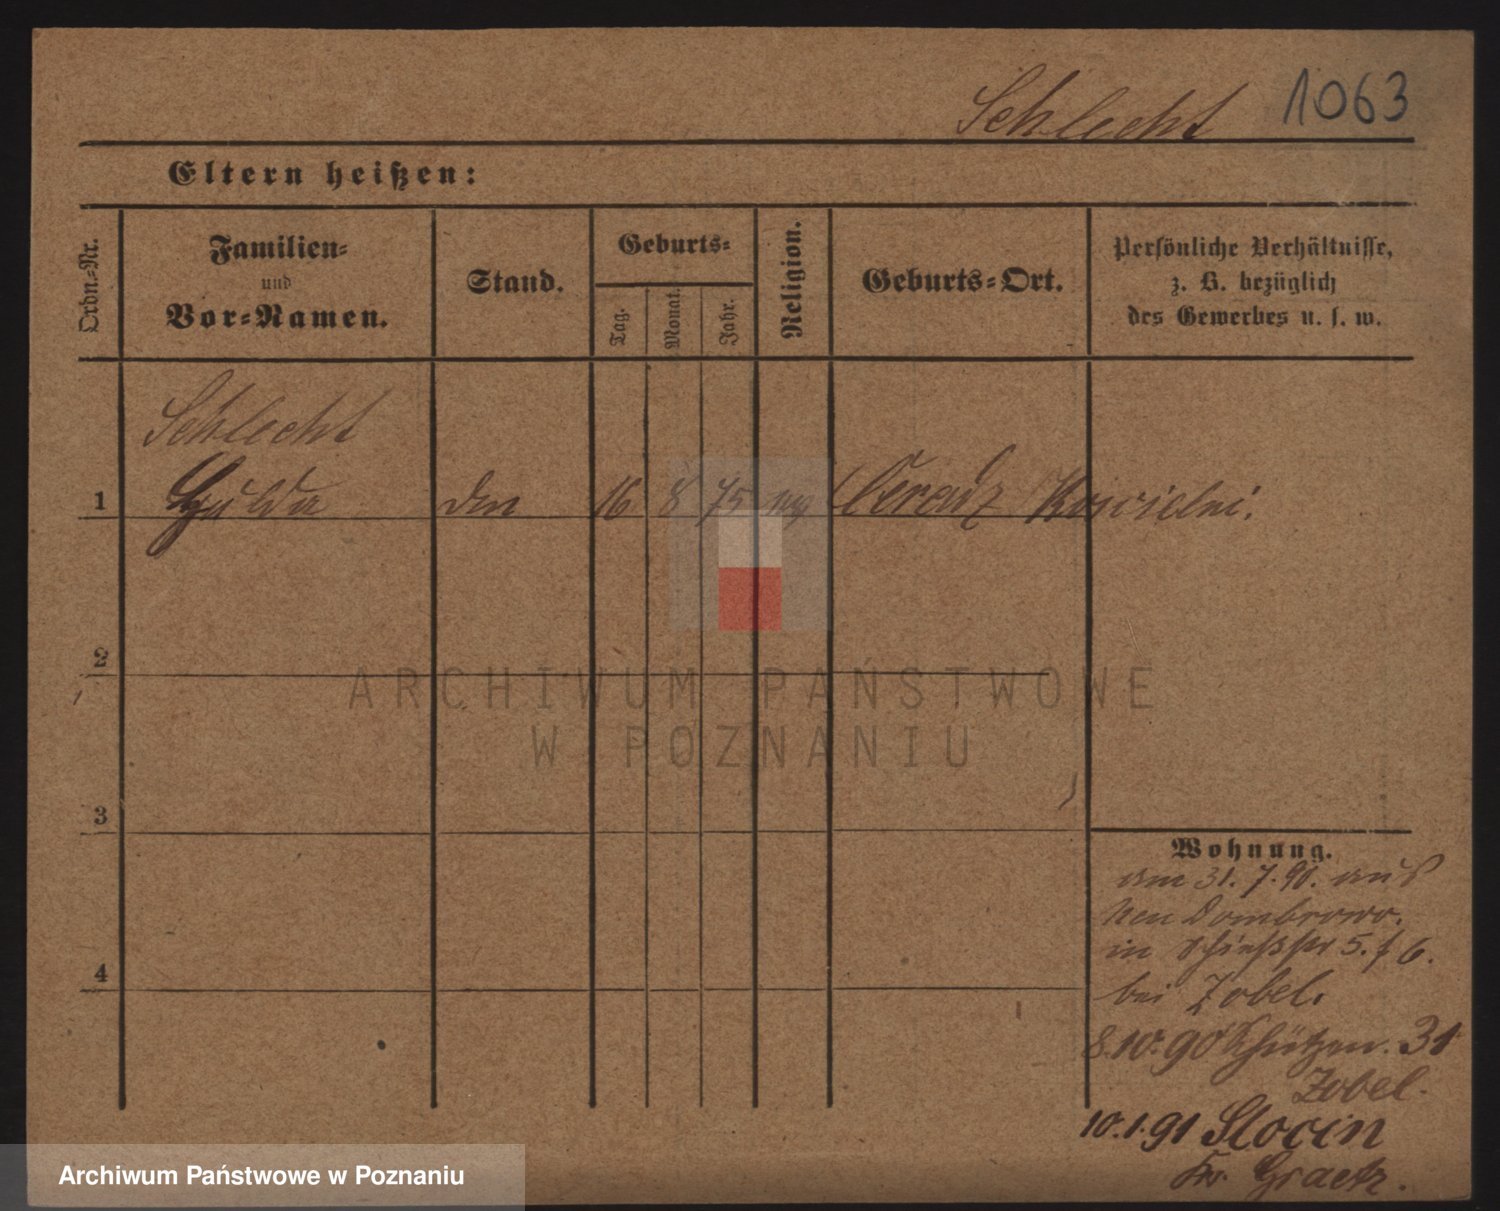 Schlecht 1063
Eltern heißen:
Ordn.-Nr.
Familien-
und
Vor-Namen.
Stand.
Geburts-
Tag.
Monat.
Jahr.
Religion.
Geburts-Ort.
Persönliche Verhältnisse,
z. B. bezüglich
des Gewerbes u. s. w.
Schlecht
1 Hulda den 16 8 75 Ceradz Koscielni.
2
3
4
Wohnung.
am 31. 7. 90. aus
Neu Dombrowo.
in Schießstr 5. / 6.
bei Zobel.
8.10.90 Schützen. 31
Zobel.
10.1.91 Slocin
Kr. Graetz.
ARCHIWUM PAŃSTWOWE
W POZNANIU
Archiwum Państwowe w Poznaniu